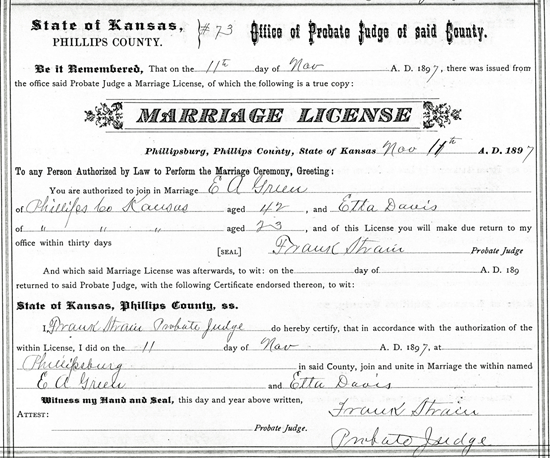 State of Kansas, PHILLIPS COUNTY. #73 Office of Probate Judge of said County.
Be it Remembered, That on the 11th day of Nov A. D. 1897, there was issued from
the office said Probate Judge a Marriage License, of which the following is a true copy:
MARRIAGE LICENSE
Phillipsburg, Phillips County, State of Kansas Nov 11th A. D. 1897
To any Person Authorized by Law to Perform the Marriage Ceremony, Greeting:
You are authorized to join in Marriage E A Green
of Phillips Co Kansas aged 42, and Etta Davis
of " " " aged 23, and of this License you will make due return to my
office within thirty days
[SEAL] Frank Strain Probate Judge
And which said Marriage License was afterwards, to wit: on the day of A. D. 189
returned to said Probate Judge, with the following Certificate endorsed thereon, to wit:
State of Kansas, Phillips County, ss.
I, Frank Strain Probate Judge do hereby certify, that in accordance with the authorization of the
within License, I did on the 11 day of Nov A. D. 1897, at
Phillipsburg in said County, join and unite in Marriage the within named
E A Green and Etta Davis
Witness my Hand and Seal, this day and year above written,
Frank Strain
ATTEST: Probate Judge.
Probate Judge.